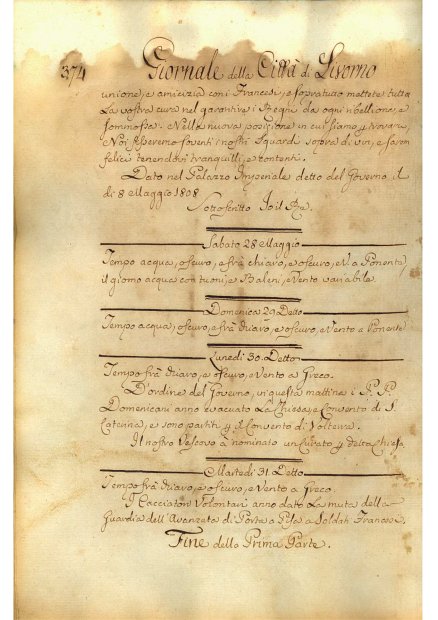 374 Giornale della Città di Livorno
unione, e amicizia coni Francesi, e sopratuto mettete tutta
La vostra cura nel garantire i Regni da ogni ribellione, e
sommossa. Nella nuova posizione in cui siamo y trovarci
Noi Speremo soventi i nostri Sguardi sopra di voi, e saren
felici tenendovi tranquilli, e contenti.
Dato nel Palazzo Imperiale detto del Governo il
di 8 Maggio 1808
Sottoscritto Io il Re
Sabato 28 Maggio
Tempo acqua, oscuro, e frà chiaro, e oscuro, e V. a Ponente
il giorno acqua con tuoni, e Baleni, e Vento variabile
Domenica 29 Detto
Tempo acqua, oscuro, e frà chiaro, e oscuro, e Vento a Ponente
Lunedi 30 Detto
Tempo frà chiaro, e oscuro, e Vento a Greco.
D'ordine del Governo, in questa mattina i P. P.
Domenicani anno evacuato La Chiesa, e Convento di S.
Caterina, e sono partiti y il Convento di Volterra.
Il nostro Vescovo à nominato un Curato y detta Chiesa
Martedi 31 Detto
Tempo frà chiaro, e oscuro, e Vento a Greco.
I Cacciatori Volontari anno dato La muta della
Guardia dell'Avanzata di Porta a Pisa a Soldati Francesi.
Fine della Prima Parte.